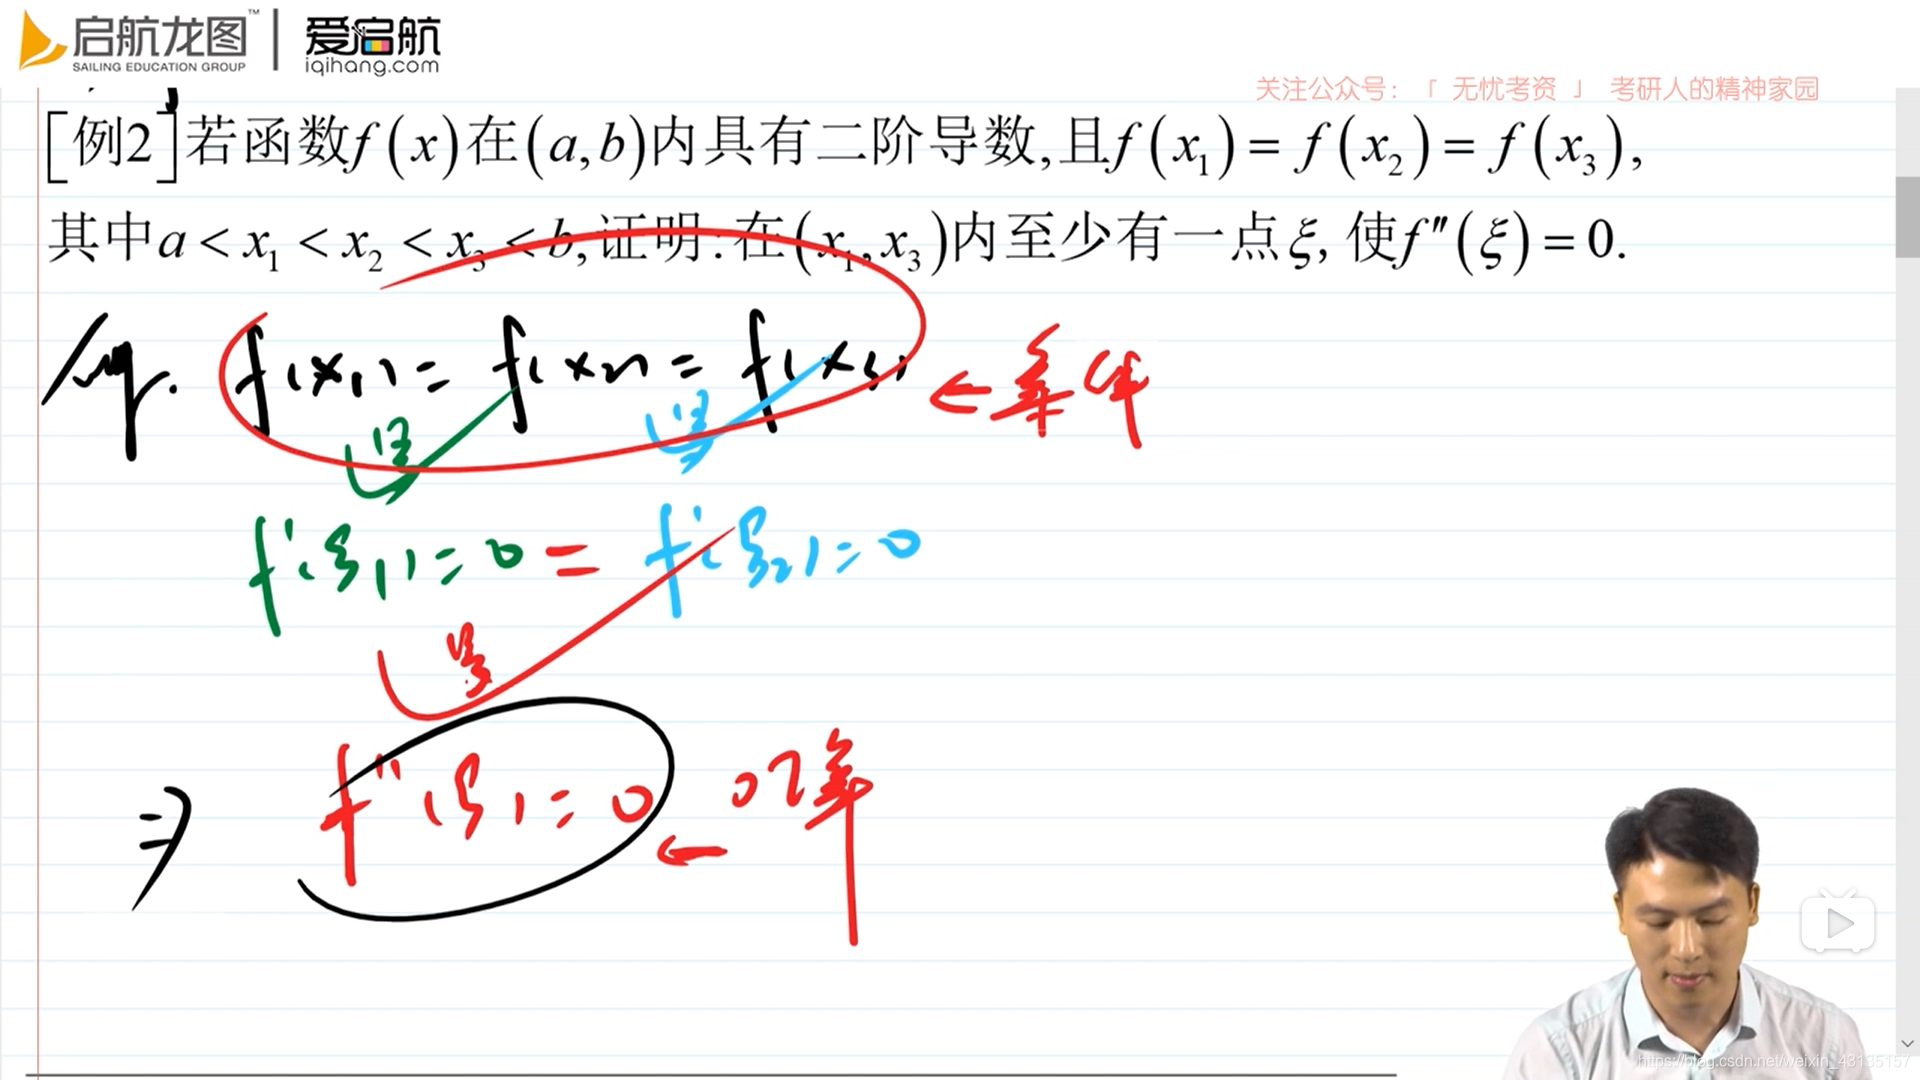 启航龙图™ | 爱启航
SAILING EDUCATION GROUP iqihang.com
关注公众号：「 无忧考资 」 考研人的精神家园
[例2]若函数f(x)在(a,b)内具有二阶导数,且f(x₁)=f(x₂)=f(x₃),
其中a<x₁<x₂<x₃<b,证明:在(x₁,x₃)内至少有一点ξ, 使f″(ξ)=0.
f(x₁)=f(x₂)=f(x₃) ← 条件
罗 罗
f′(ξ₁)=0 = f′(ξ₂)=0
罗
⇒ f″(ξ)=0 ←
https://blog.csdn.net/weixin_43135157